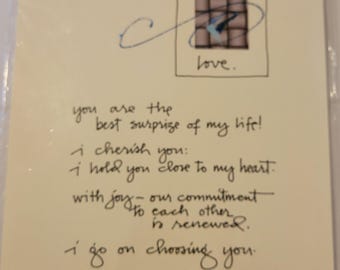 love.
you are the
best surprise of my life!
i cherish you:
i hold you close to my heart.
with joy – our commitment
to each other
is renewed.
i go on choosing you.